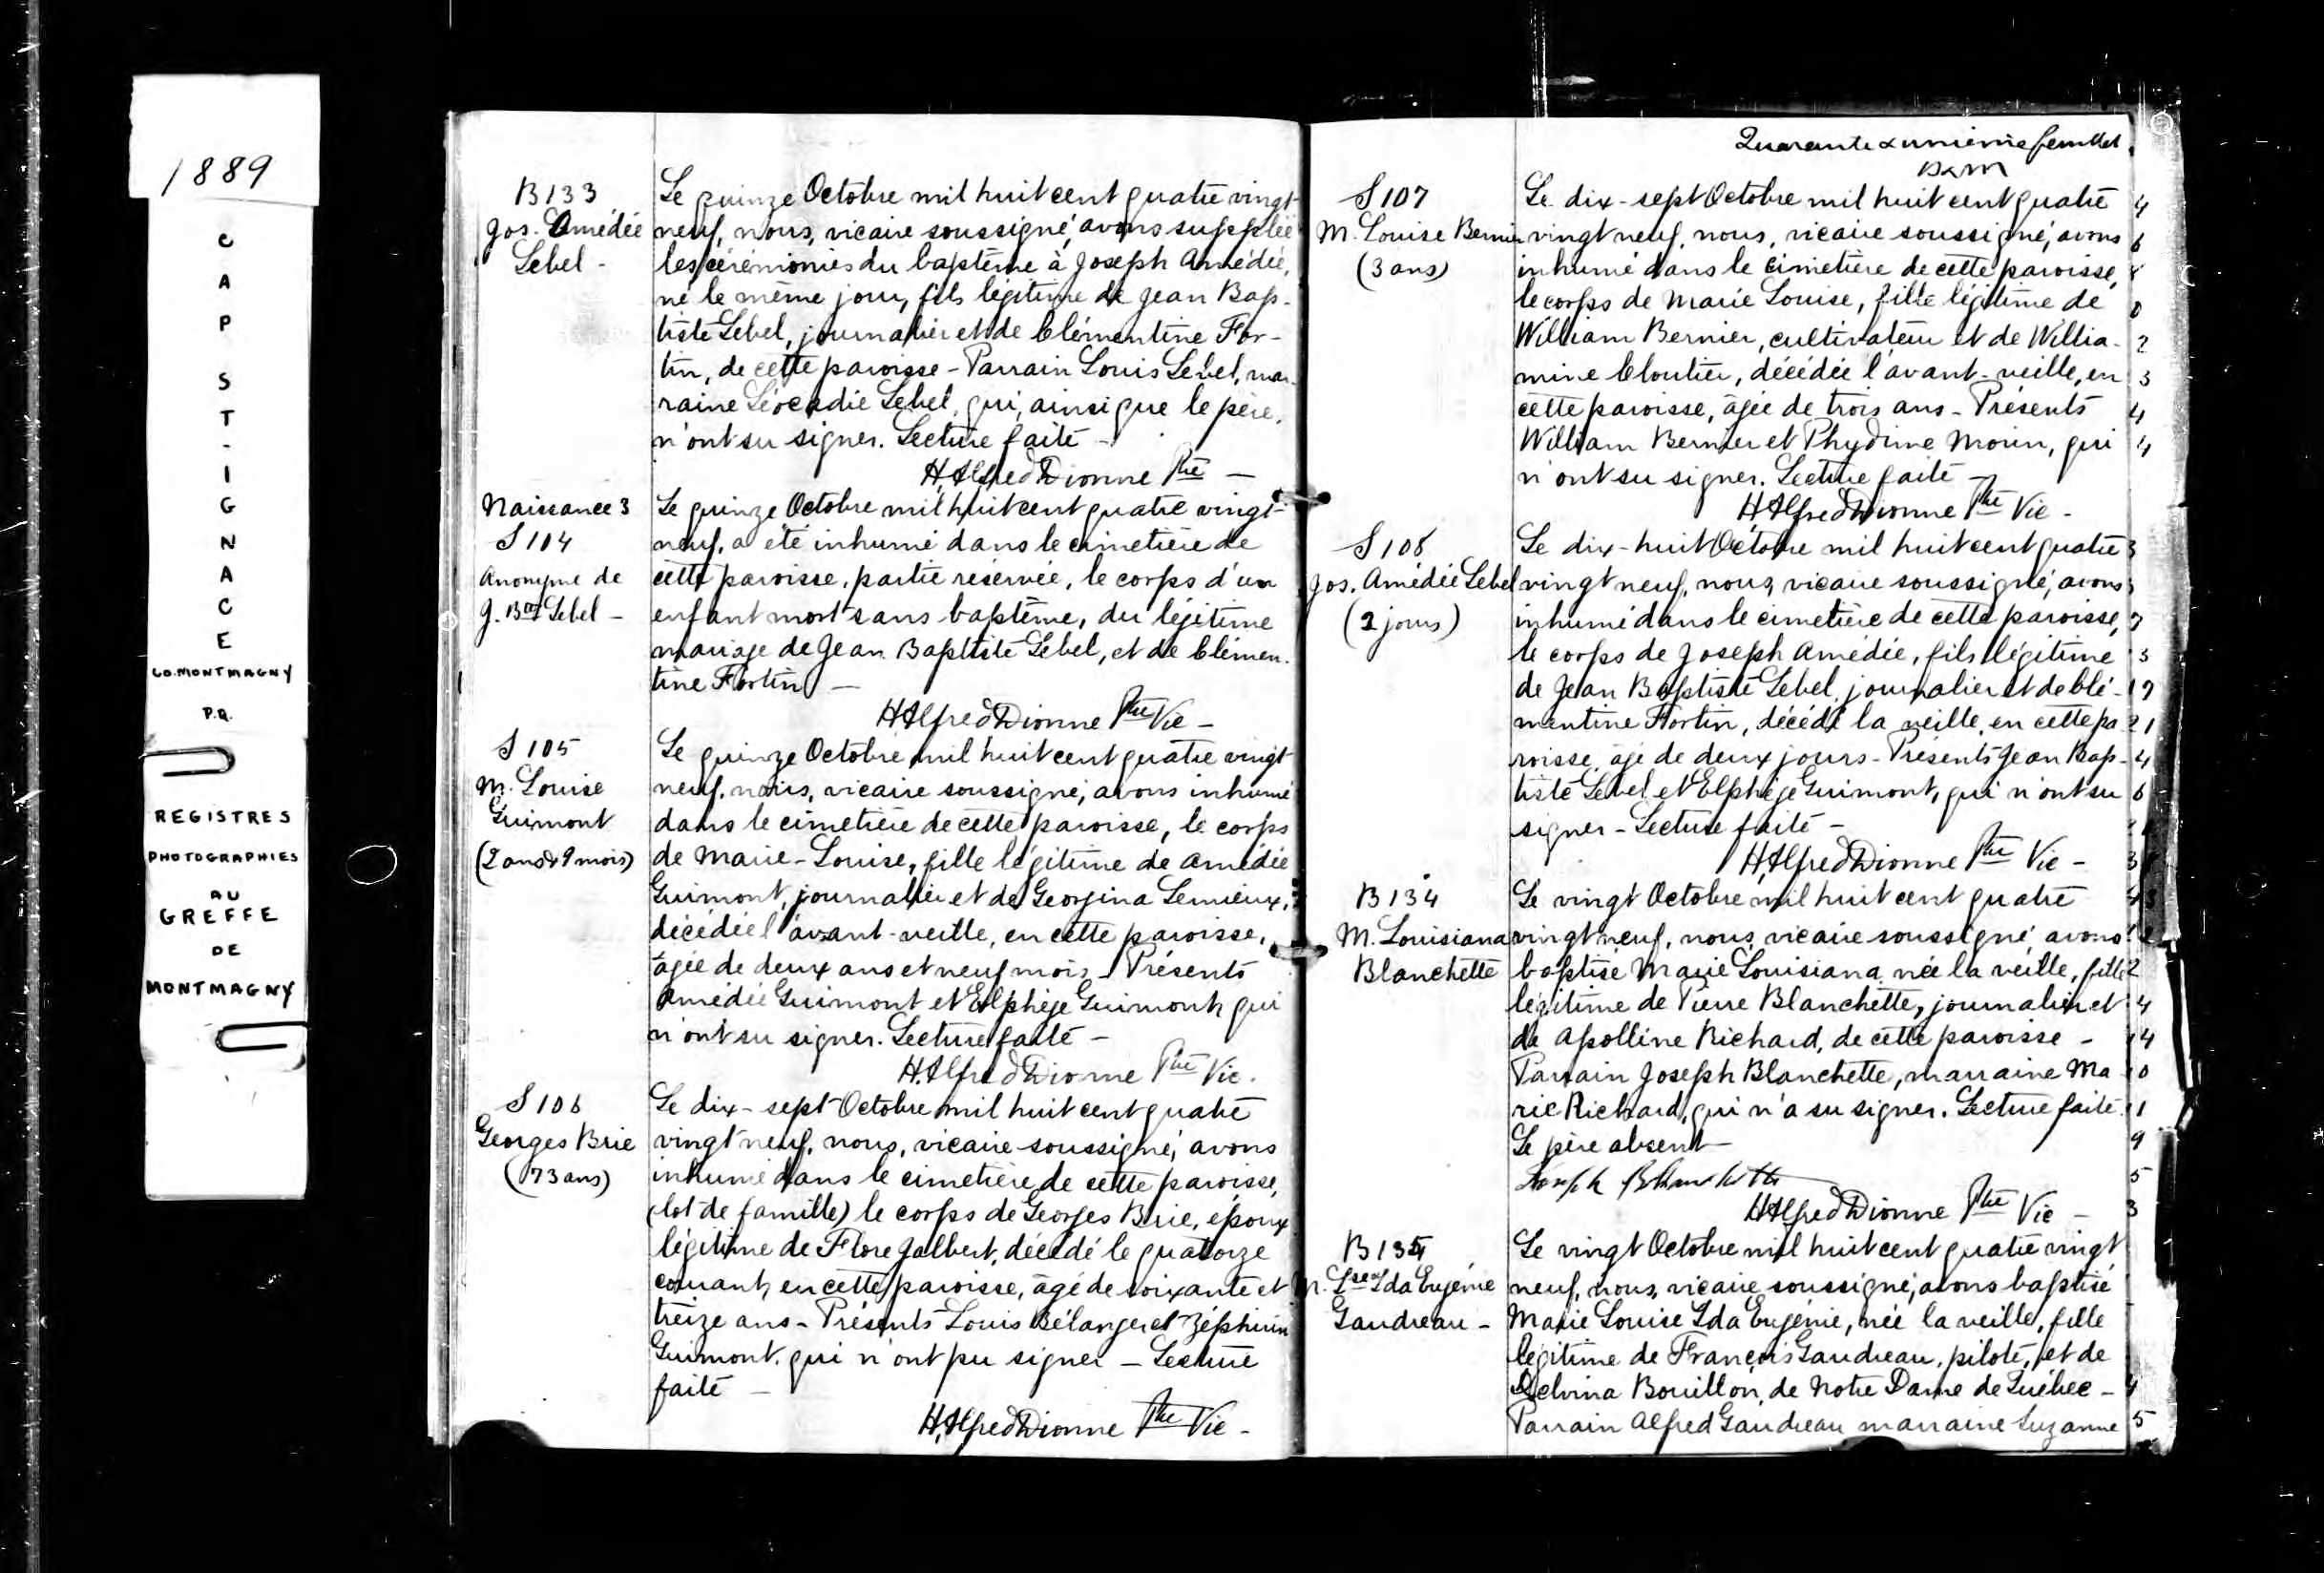 1889
CAP ST-IGNACE
CO. MONTMAGNY
P.Q.
REGISTRES
PHOTOGRAPHIES
AU
GREFFE
DE
MONTMAGNY
B133
Jos. Amédée
Lebel -
Le quinze Octobre mil huit cent quatre vingt
neuf, nous, vicaire soussigné, avons suppléé
les cérémonies du baptême à Joseph Amédée,
né le même jour, fils légitime de Jean Bap-
tiste Lebel, journalier et de Clémentine For-
tin, de cette paroisse - Parrain Louis Lebel, mar-
raine Léocadie Lebel, qui, ainsi que le père,
n'ont su signer. Lecture faite -
H. Alfred Dionne Ptre -
Naissance 3
S 104
Anonyme de
J. Bte Lebel -
Le quinze Octobre mil huit cent quatre vingt-
neuf, a été inhumé dans le cimetière de
cette paroisse, partie réservée, le corps d'un
enfant mort sans baptême, du légitime
mariage de Jean Baptiste Lebel, et de Clémen-
tine Fortin -
H. Alfred Dionne Ptre Vic -
S 105
M. Louise
Guimont
(2 ans & 9 mois)
Le quinze Octobre mil huit cent quatre vingt
neuf, nous, vicaire soussigné, avons inhumé
dans le cimetière de cette paroisse, le corps
de Marie-Louise, fille légitime de Amédée
Guimont, journalier et de Georgina Lemieux,
décédée l'avant-veille, en cette paroisse,
âgée de deux ans et neuf mois - Présents
Amédée Guimont et Elphège Guimont, qui
n'ont su signer. Lecture faite -
H. Alfred Dionne Ptre Vic.
S 106
Georges Brie
(73 ans)
Le dix-sept Octobre mil huit cent quatre
vingt neuf, nous, vicaire soussigné, avons
inhumé dans le cimetière de cette paroisse,
(lot de famille) le corps de Georges Brie, époux
légitime de Flore Jalbert, décédé le quatorze
courant, en cette paroisse, âgé de soixante et
treize ans - Présents Louis Bélanger et Zéphirin
Guimont, qui n'ont pu signer - Lecture
faite -
H. Alfred Dionne Ptre Vic -
Quarante & unième feuillet
S 107
M. Louise Bernier
(3 ans)
Le dix-sept Octobre mil huit cent quatre
vingt neuf, nous, vicaire soussigné, avons
inhumé dans le cimetière de cette paroisse,
le corps de Marie Louise, fille légitime de
William Bernier, cultivateur et de Willia-
mine Cloutier, décédée l'avant-veille, en
cette paroisse, âgée de trois ans - Présents
William Bernier et Phydime Morin, qui
n'ont su signer. Lecture faite -
H. Alfred Dionne Ptre Vic -
S 108
Jos. Amédée Lebel
(2 jours)
Le dix-huit Octobre mil huit cent quatre
vingt neuf, nous, vicaire soussigné, avons
inhumé dans le cimetière de cette paroisse,
le corps de Joseph Amédée, fils légitime
de Jean Baptiste Lebel, journalier et de Clé-
mentine Fortin, décédé la veille, en cette pa
roisse, âgé de deux jours - Présents Jean Bap-
tiste Lebel et Elphège Guimont, qui n'ont su
signer - Lecture faite -
H. Alfred Dionne Ptre Vic -
B 134
M. Louisiana
Blanchette
Le vingt Octobre mil huit cent quatre
vingt neuf, nous, vicaire soussigné, avons
baptisé Marie Louisiana, née la veille, fille
légitime de Pierre Blanchette, journalier et
de Apolline Richard, de cette paroisse -
Parrain Joseph Blanchette, marraine Ma
rie Richard, qui n'a su signer. Lecture faite.
Le père absent -
Joseph Blanchette
H. Alfred Dionne Ptre Vic -
B 135
M. Lse Ida Eugénie
Gaudreau -
Le vingt Octobre mil huit cent quatre vingt
neuf, nous, vicaire soussigné, avons baptisé
Marie Louise Ida Eugénie, née la veille, fille
légitime de François Gaudreau, pilote, et de
Delvina Bouillon, de Notre Dame de Québec -
Parrain Alfred Gaudreau marraine Suzanne